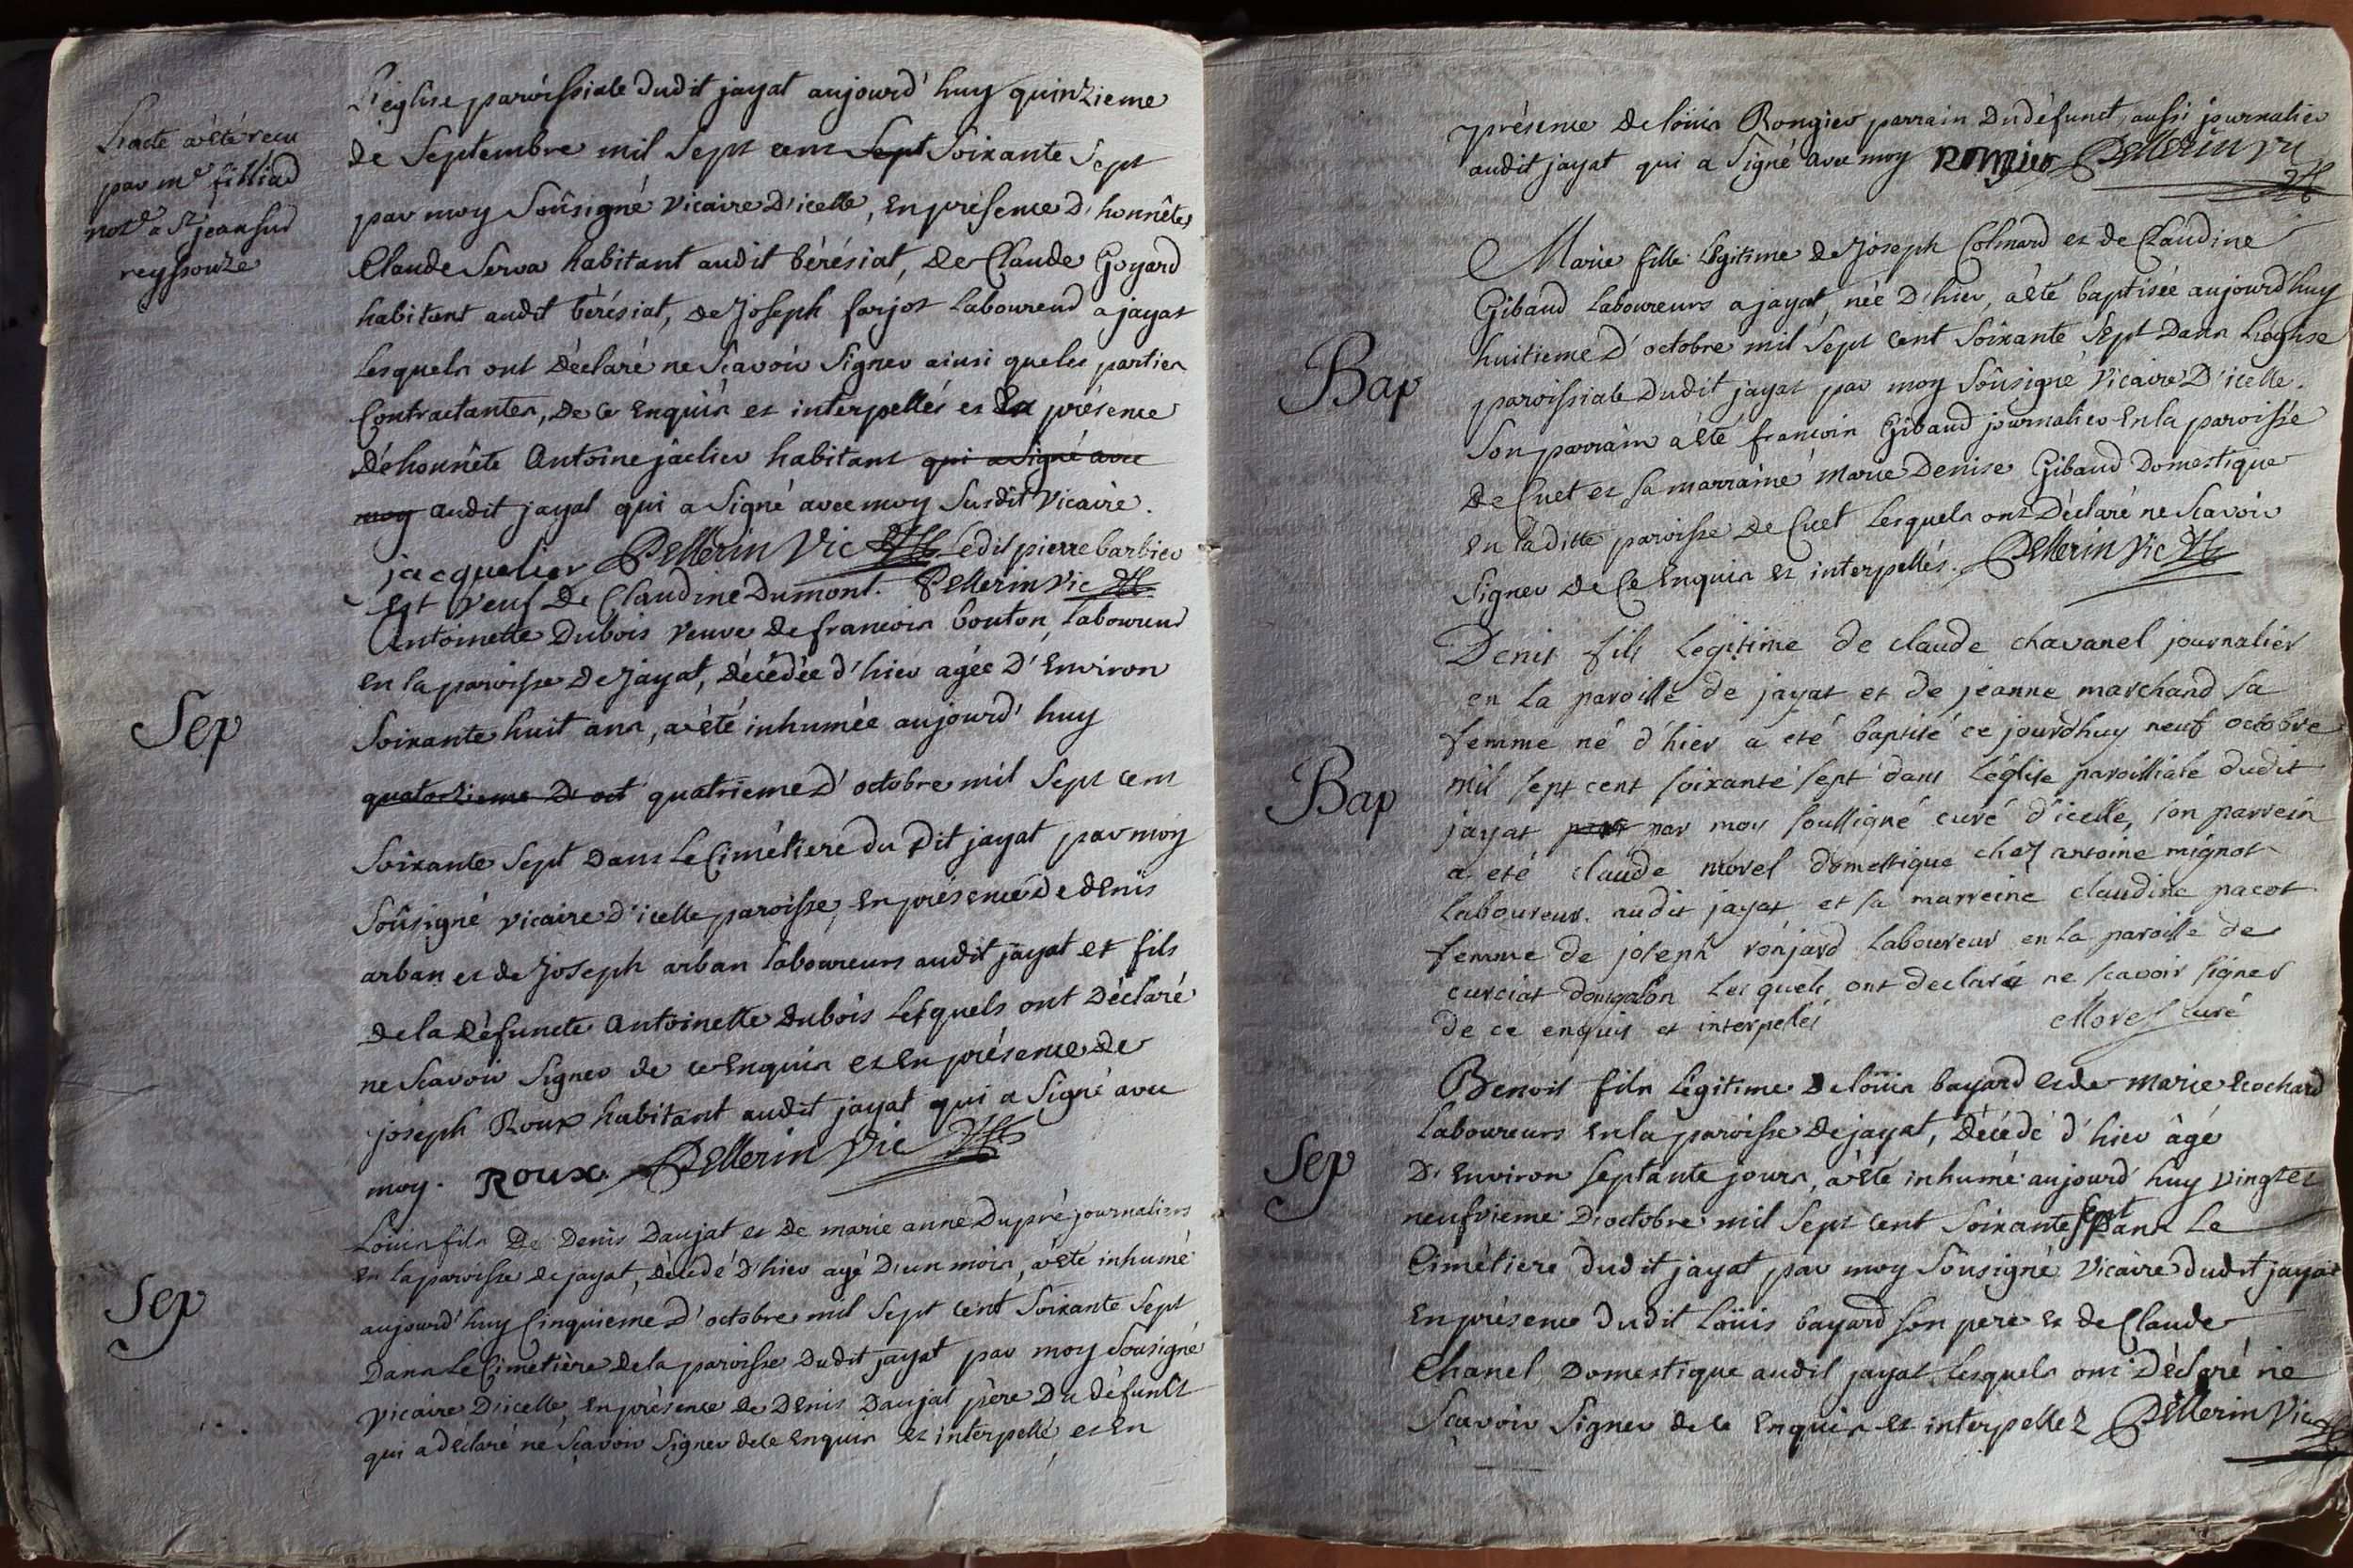 L'acte a été recu
par me filliad
notre a St jean sur
reyssouze
L'église paroissiale dudit jayat aujourd'huy quinzieme
de Septembre mil Sept cent Sept Soixante Sept
par moy Soûsigné vicaire D'icelle, en présence D'honnêtes
Claude Serva habitant audit bérésiat, de Claude Goyard
habitant audit bérésiat, de Joseph farjot Laboureur a jayat
Lesquels ont Déclaré ne Scavoir Signer ainsi que les parties
Contractantes, de ce Enquis et interpellés et En présence
D'honnête Antoine jâclier habitant qui a Signé avec
moy audit jayat qui a Signé avec moy Susdit vicaire.
jacquelier Pellerin Vic Ledit pierre barbier
Est veuf de Claudine Dumont. Pellerin Vic
Sep
Antoinette Dubois veuve de francois bouton, Laboureur
en la paroisse de Jayat, décédée d'hier agée D'Environ
Soixante huit ans, a été inhumée aujourd'huy
quatorzieme D'oct quatrieme D'octobre mil Sept cent
Soixante Sept Dans Le Cimétiere du Dit jayat par moy
Soûsigné vicaire d'icelle paroisse, en présence de Denis
arban et de Joseph arban laboureurs audit jayat et fils
de la Défuncte Antoinette Dubois Lesquels ont Déclaré
ne Scavoir Signer de ce Enquis et En présence de
joseph Roux habitant audit jayat qui a Signé avec
moy. Roux. Pellerin Vic
Sep
Louis fils De Denis Daujat et De marie anne Dupré journaliers
en la paroisse de jayat, décédé D'hier agé D'un mois, a été inhumé
aujourd'huy Cinquième D'octobre mil Sept cent Soixante Sept
Dans Le Cimetière de la paroisse Dudit jayat par moy Sousigné
vicaire D'icelle, en présence de Denis Daujat père Du défunct
qui a Déclaré ne Scavoir Signer de ce Enquis et interpellé et En
présence de loüis Rongier parrain Du défunct aussi journalier
audit jayat qui a Signé avec moy Rongier Pellerin Vic
Bap
Marie fille Légitime de Joseph Colmard et de Claudine
Gibaud Laboureurs a jayat, née D'hier, a été baptisée aujourd'huy
huitieme D'octobre mil Sept Cent Soixante Sept Dans L'église
paroissiale Dudit jayat par moy Soûsigné Vicaire D'icelle.
Son parrain a été francois Gibaud journalier En la paroisse
De Cuet et Sa marraine Marie Denise Gibaud Domestique
en laditte paroisse de Cuet Lesquels ont Déclaré ne Scavoir
Signer de Ce Enquis et interpellés. Pellerin Vic
Bap
Denis fils Legitime de claude chavanel journalier
en la paroisse de jayat et de jeanne marchand sa
femme né d'hier a eté baptisé ce jourd'huy neuf octobre
mil sept cent soixante sept dans L'église paroissiale dudit
jayat par moy soussigné curé d'icelle, son parrein
a eté claude morel domestique chez antoine mignot
Laboureur audit jayat et sa marreine claudine pacot
femme de joseph ronjard Laboureur en la paroisse de
curciat dongalon Lesquels ont declaré ne scavoir signer
de ce enquis et interpellés Morel curé
Sep
Benoit fils Légitime de loüis bayard et de marie Ecochard
Laboureurs En la paroisse de jayat, décédé d'hier âgé
D'Environ Septante jours, a été inhumé aujourd'huy vingt et
neufvieme D'octobre mil Sept Cent Soixante Sept Dans Le
Cimétiere dudit jayat par moy Soûsigné Vicaire dudit jayat
en présence dudit Loüis bayard son pere et de Claude
Chanel Domestique audit jayat Lesquels ont Déclaré ne
Scavoir Signer de ce Enquis et interpellez Pellerin Vic